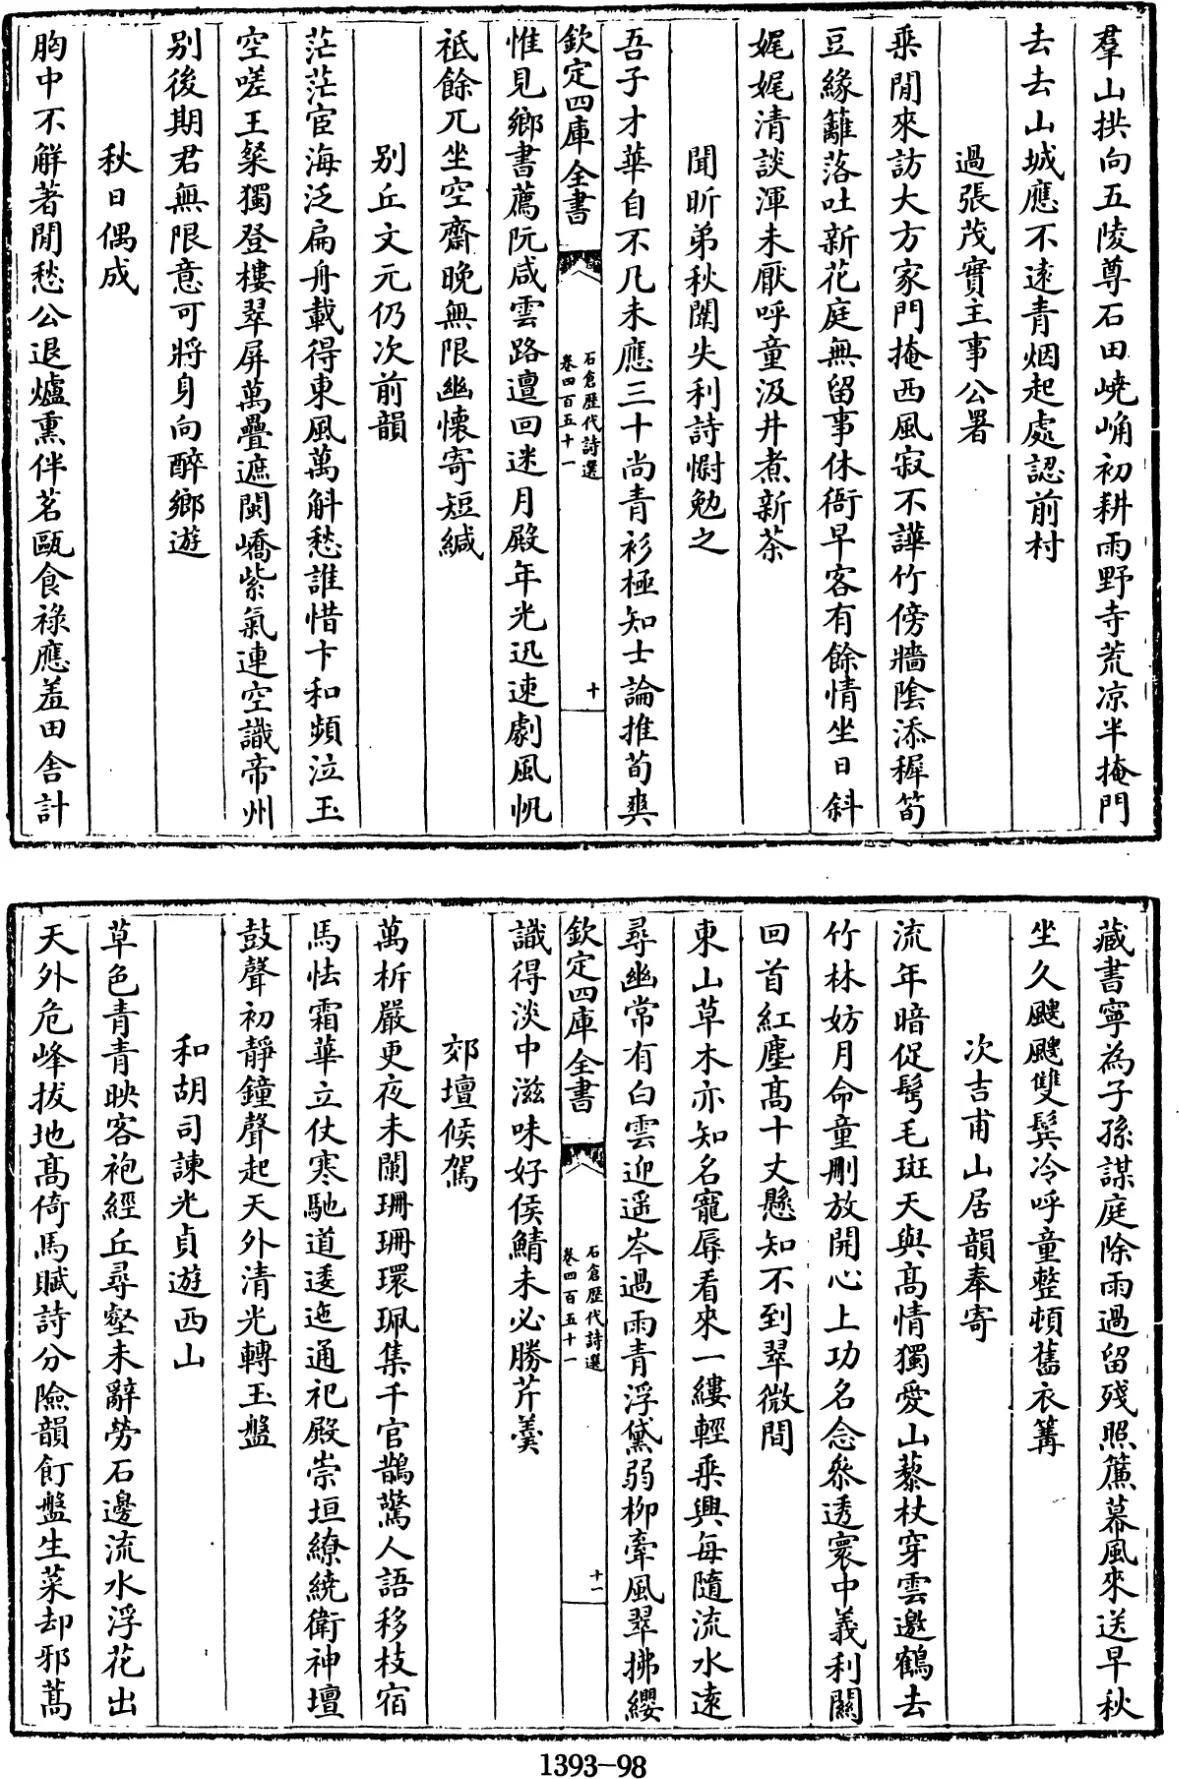 羣山拱向五陵尊石田嶢崅初耕雨野寺荒凉半掩門
去去山城應不遠青烟起處認前村
過張茂實主事公署
乘閒來訪大方家門掩西風寂不譁竹傍牆陰添穉筍
豆緣籬落吐新花庭無留事休衙早客有餘情坐日斜
娓娓清談渾未厭呼童汲井煮新茶
聞昕弟秋闈失利詩慰勉之
吾子才華自不凡未應三十尚青衫極知士論推荀爽
欽定四庫全書
石倉歷代詩選
卷四百五十一
十
惟見鄉書薦阮咸雲路邅回迷月殿年光迅速劇風帆
祗餘兀坐空齋晚無限幽懷寄短緘
别丘文元仍次前韻
茫茫宦海泛扁舟載得東風萬斛愁誰惜卞和頻泣玉
空嗟王粲獨登樓翠屏萬疊遮閩嶠紫氣連空識帝州
别後期君無限意可將身向醉鄉遊
秋日偶成
胸中不解著閒愁公退爐熏伴茗甌食祿應羞田舎計
藏書寧為子孫謀庭除雨過留殘照簾幕風來送早秋
坐久颼颼雙鬂冷呼童整頓舊衣篝
次吉甫山居韻奉寄
流年暗促鬂毛斑天與高情獨愛山藜杖穿雲邀鶴去
竹林妨月命童刪放開心上功名念叅透寰中義利關
回首紅塵髙十丈懸知不到翠微間
東山草木亦知名寵辱看來一縷輕乘興每隨流水遠
尋幽常有白雲迎遥岑過雨青浮黛弱柳牽風翠拂纓
欽定四庫全書
石倉歷代詩選
卷四百五十一
十一
識得淡中滋味好侯鯖未必勝芹羮
郊壇候駕
萬柝嚴更夜未闌珊珊環珮集千官鵲驚人語移枝宿
馬怯霜華立仗寒馳道逶迤通祀殿崇垣繚繞衛神壇
鼓聲初靜鐘聲起天外清光轉玉盤
和胡司諫光貞遊西山
草色青青映客袍經丘尋壑未辭勞石邊流水浮花出
天外危峰拔地髙倚馬賦詩分險韻飣盤生菜却邪蒿
1393-98